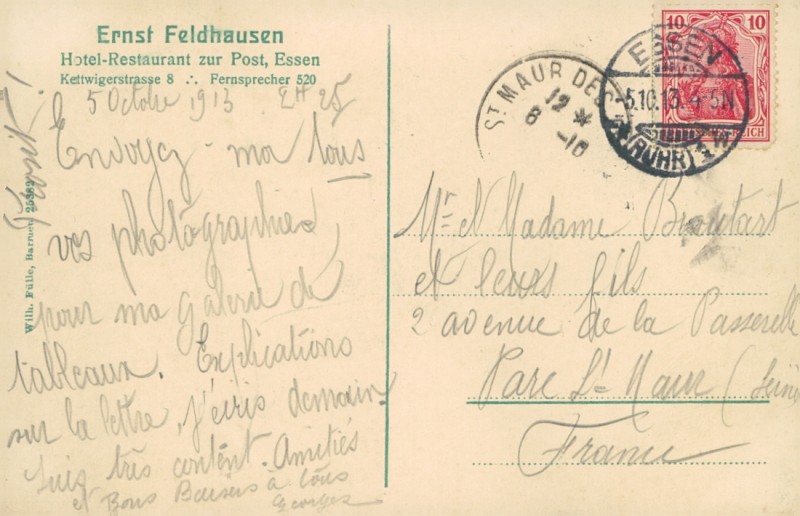 Ernst Feldhausen
Hotel-Restaurant zur Post, Essen
Kettwigerstrasse 8 ∴ Fernsprecher 520
5 Octobre 1913
Envoyez-moi tous
vos photographies
pour ma galerie de
tableaux. Explications
sur la lettre, j'écris demain
suis très content. Amitiés
et Bons Baisers à tous
Georges
Wilh. Fülle, Barmen
10 10
ESSEN
-5.10.13. 4-5N
(RUHR)
ST MAUR DES
12 *
6 -10
REICH
Mr et Madame
et leurs fils
2 avenue de la Passerelle
Parc St Maur (Seine
France